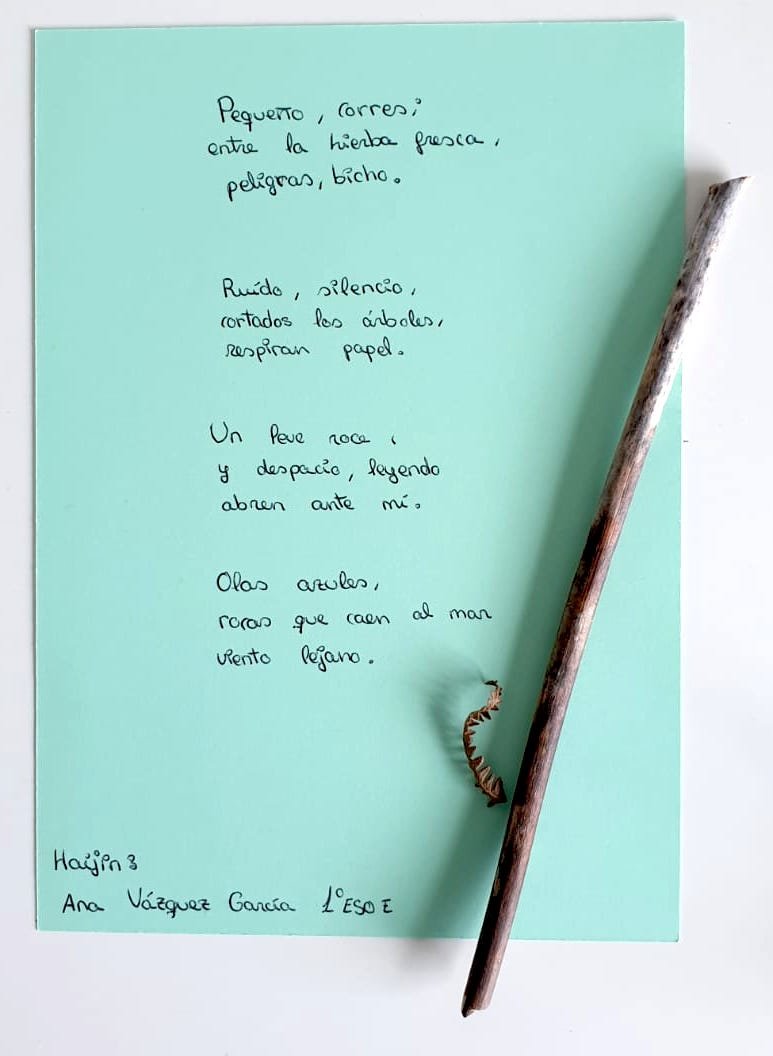 Pequeño, corres;
entre la hierba fresca,
peligras, bicho.
Ruído, silencio,
cortados los árboles,
respiran papel.
Un leve roce,
y despacio, leyendo
abren ante mí.
Olas azules,
rocas que caen al mar
viento lejano.
Haijin 3
Ana Vázquez García 1º ESO E